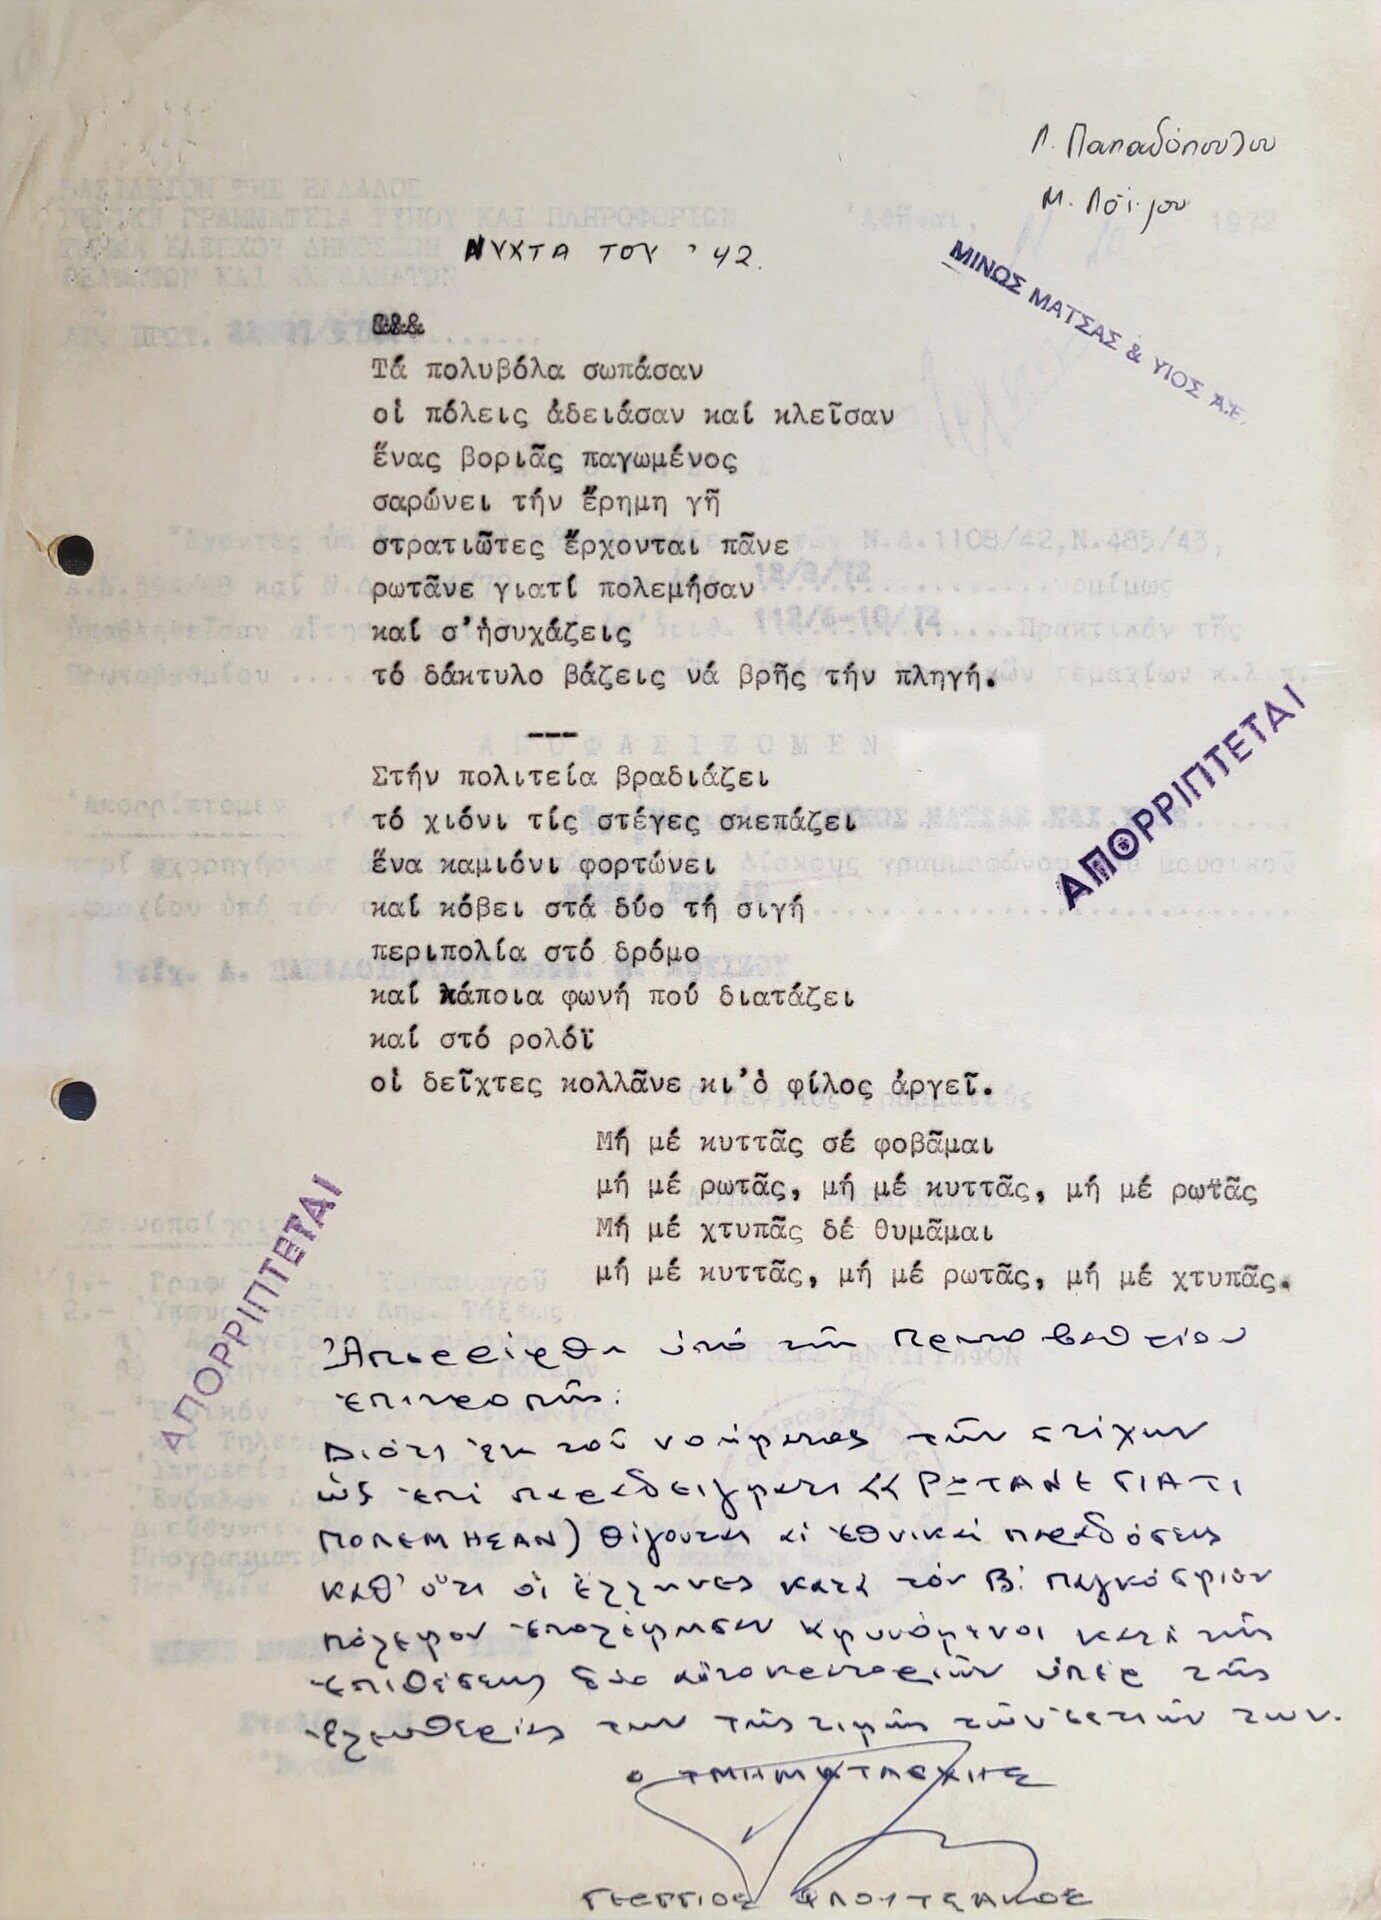 Λ. Παπαδόπουλου
Μ. Λόϊζου
ΝΥΧΤΑ ΤΟΥ '42.
ΜΙΝΩΣ ΜΑΤΣΑΣ & ΥΙΟΣ Α.Ε.
Τά πολυβόλα σωπάσαν
οἱ πόλεις ἀδειάσαν καί κλεῖσαν
ἕνας βοριᾶς παγωμένος
σαρώνει τήν ἔρημη γῆ
στρατιῶτες ἔρχονται πᾶνε
ρωτᾶνε γιατί πολεμήσαν
καί σ'ἡσυχάζεις
τό δάκτυλο βάζεις νά βρῆς τήν πληγή.
---
Στήν πολιτεία βραδιάζει
τό χιόνι τίς στέγες σκεπάζει
ἕνα καμιόνι φορτώνει
καί κόβει στά δύο τή σιγή
περιπολία στό δρόμο
καί κάποια φωνή πού διατάζει
καί στό ρολόϊ
οἱ δεῖχτες κολλᾶνε κι'ὁ φίλος ἀργεῖ.
ΑΠΟΡΡΙΠΤΕΤΑΙ
Μή μέ κυττᾶς σέ φοβᾶμαι
μή μέ ρωτᾶς, μή μέ κυττᾶς, μή μέ ρωτᾶς
Μή μέ χτυπᾶς δέ θυμᾶμαι
μή μέ κυττᾶς, μή μέ ρωτᾶς, μή μέ χτυπᾶς.
ΑΠΟΡΡΙΠΤΕΤΑΙ
Ἀπερρίφθη ὑπό τῆς πρωτοβαθμίου
ἐπιτροπῆς:
Διότι ἐκ τοῦ νοήματος τῶν στίχων
ὡς ἐπί παραδείγματι << ΡΩΤΑΝΕ ΓΙΑΤΙ
ΠΟΛΕΜΗΣΑΝ) θίγονται αἱ ἐθνικαί παραδόσεις
καθ' ὅτι οἱ Ἕλληνες κατά τόν Β! παγκόσμιον
πόλεμον ἐπολέμησαν ἀμυνόμενοι κατά τῆς
ἐπιθέσεως δύο αὐτοκρατοριῶν ὑπέρ τῆς
ἐλευθερίας των τῆς τιμῆς τῶν ἑστιῶν των.
Ο ΤΜΗΜΑΤΑΡΧΗΣ
ΓΕΩΡΓΙΟΣ